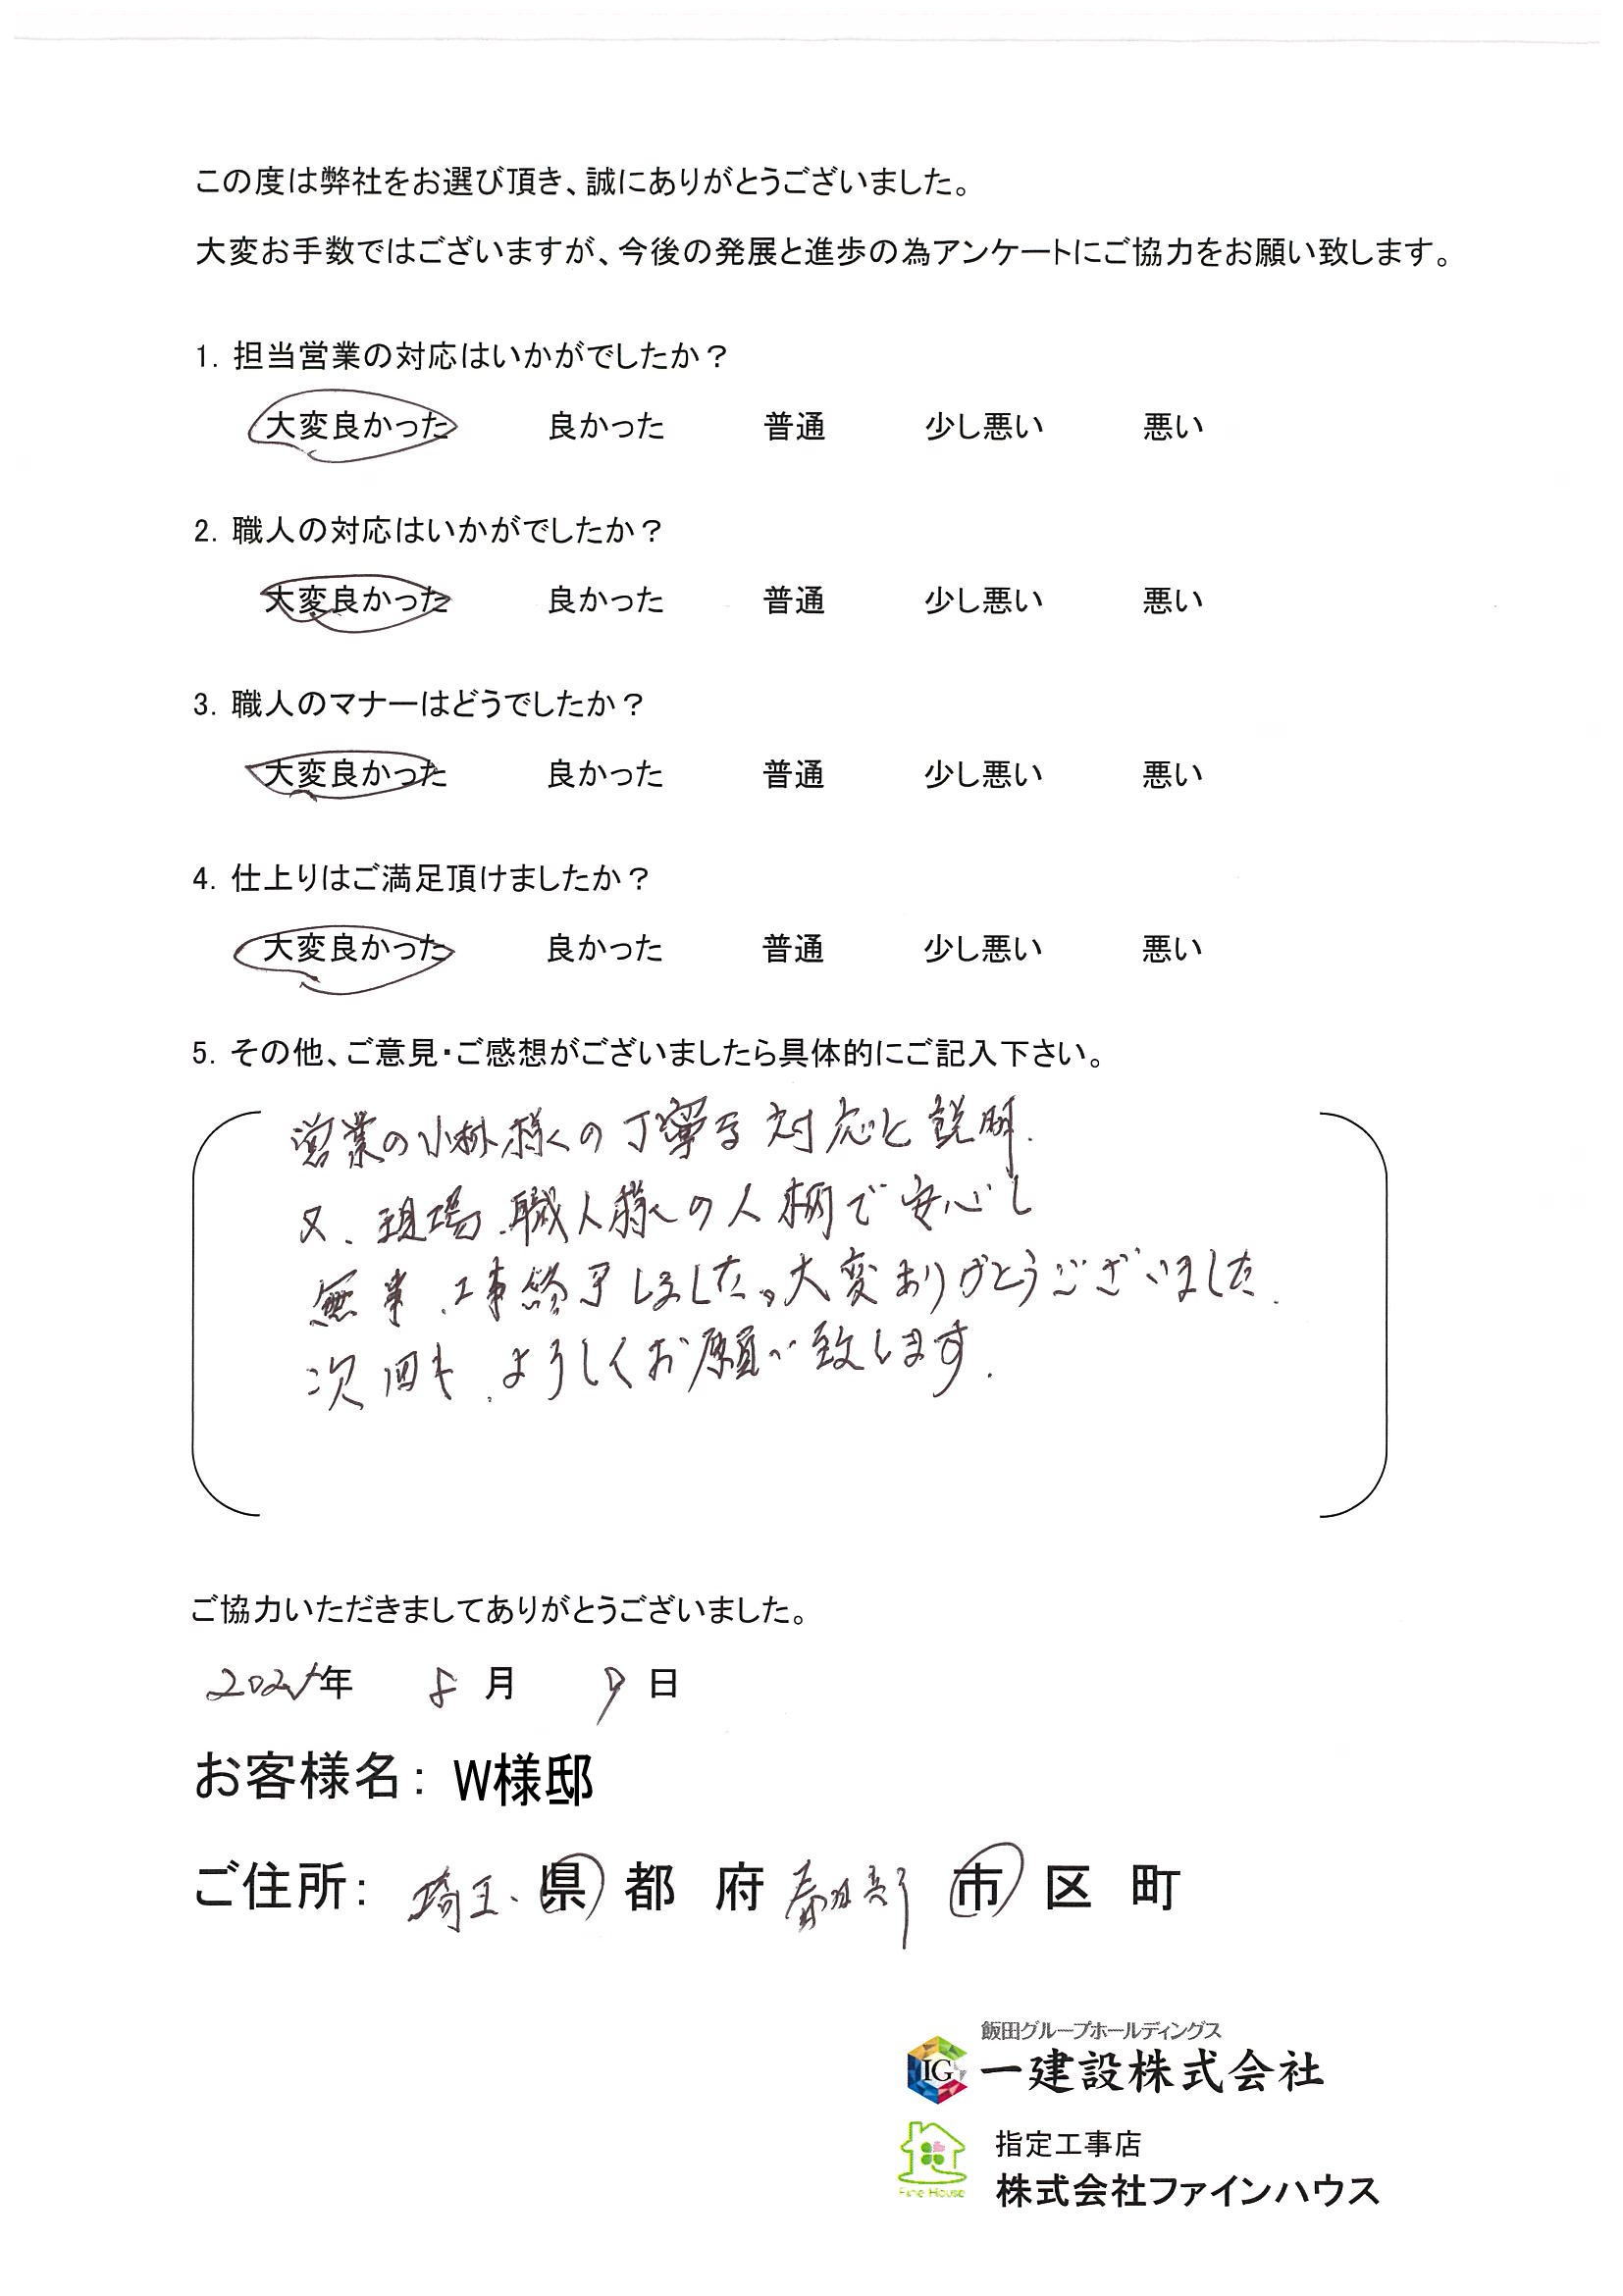 この度は弊社をお選び頂き、誠にありがとうございました。
大変お手数ではございますが、今後の発展と進歩の為アンケートにご協力をお願い致します。
1. 担当営業の対応はいかがでしたか？
大変良かった 良かった 普通 少し悪い 悪い
2. 職人の対応はいかがでしたか？
大変良かった 良かった 普通 少し悪い 悪い
3. 職人のマナーはどうでしたか？
大変良かった 良かった 普通 少し悪い 悪い
4. 仕上りはご満足頂けましたか？
大変良かった 良かった 普通 少し悪い 悪い
5. その他、ご意見・ご感想がございましたら具体的にご記入下さい。
営業の小林様の丁寧な対応と説明、
又、現場、職人様の人柄で安心し
無事、工事終了しました。大変ありがとうございました。
次回も、よろしくお願い致します。
ご協力いただきましてありがとうございました。
年 8月 9日
お客様名： W様邸
ご住所： 埼玉 県 都 府 市 区 町
飯田グループホールディングス
IG 一建設株式会社
指定工事店
Fine House 株式会社ファインハウス